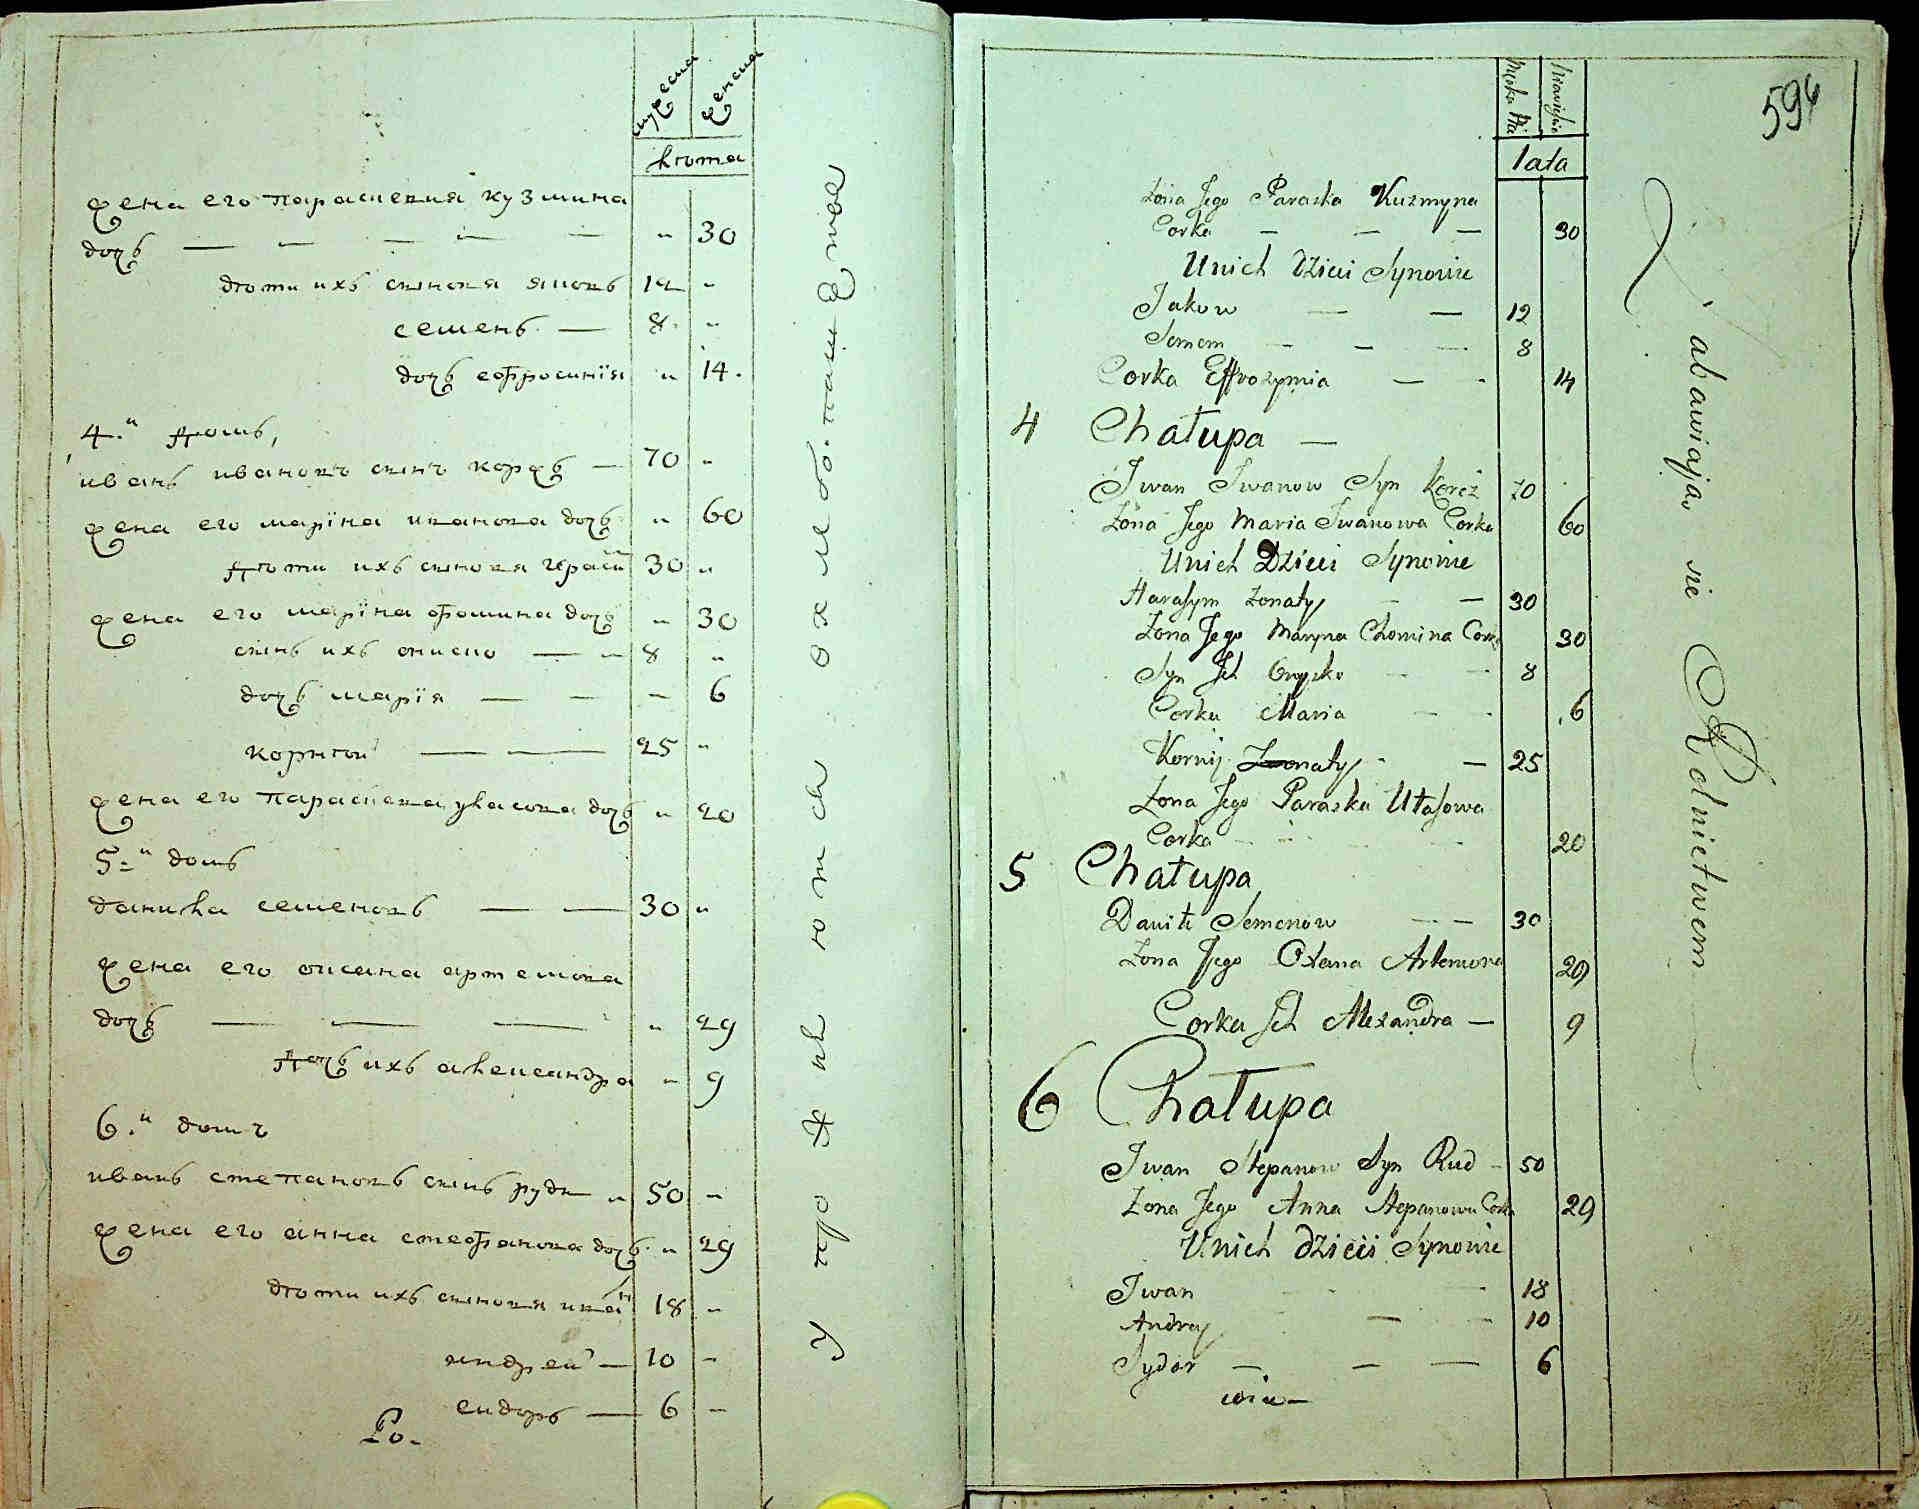 мужеска
женска
лѣта
жена его параскевия кузмина
дочь — — — — — „ 30
дѣти ихъ сынови яковъ 12 „
семенъ — 8 „
дочь ефросинїя „ 14
4й домъ
иванъ ивановъ сынъ коржъ — 70 „
жена его марїна иванова дочь „ 60
дѣти ихъ сынови гераси 30 „
жена его марїна фомина дочь „ 30
сынъ ихъ ониско — 8 „
дочь марїя — — — 6
корнѣй — — 25 „
жена его параскева уласова дочь „ 20
5й домъ
данила семеновъ — — 30 „
жена его оксана артемова
дочь — — — „ 29
дочь ихъ александра „ 9
6й домъ
иванъ степановъ сынъ рудь „ 50 „
жена его анна стефанова дочь „ 29
дѣти ихъ сынови иван 18 „
андрей — 10 „
сидоръ — 6 „
Ро-
594
Męska
lata
Żona Jego Paraska Kuzmyna
Corka — — — 30
Unich Dzieci Synowie
Jakow — — 12
Semem — — — 8
Corka Effrozymia — - 14
4 Chałupa —
Iwan Iwanow Syn Korż 70
Żona Jego Maria Iwanowa Corka 60
Unich Dzieci Synowie
Harasym żonaty — — 30
Żona Jego Maryna Chomina Corka 30
Syn Ich Onysko — — 8
Corka Maria — - 6
Kornij Żonaty - — 25
Żona Jego Paraska Ułasowa
Corka — — 20
5 Chałupa
Daniło Semenow — — 30
Żona Jego Oxana Artemowa 29
Corka Ich Alexandra — 9
6 Chałupa
Iwan Stepanow Syn Rud - 50
Żona Jego Anna Stepanowa Corka 29
Unich Dzieci Synowie
Iwan 18
Andrey — - 10
Sydor — — — 6
Zabawiaią się Rolnictwem